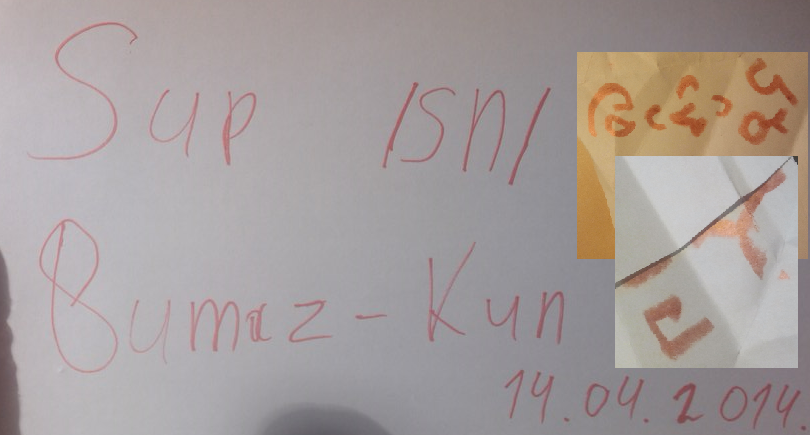 Sup /sn/
Bumaz-Kun
14.04.2014.